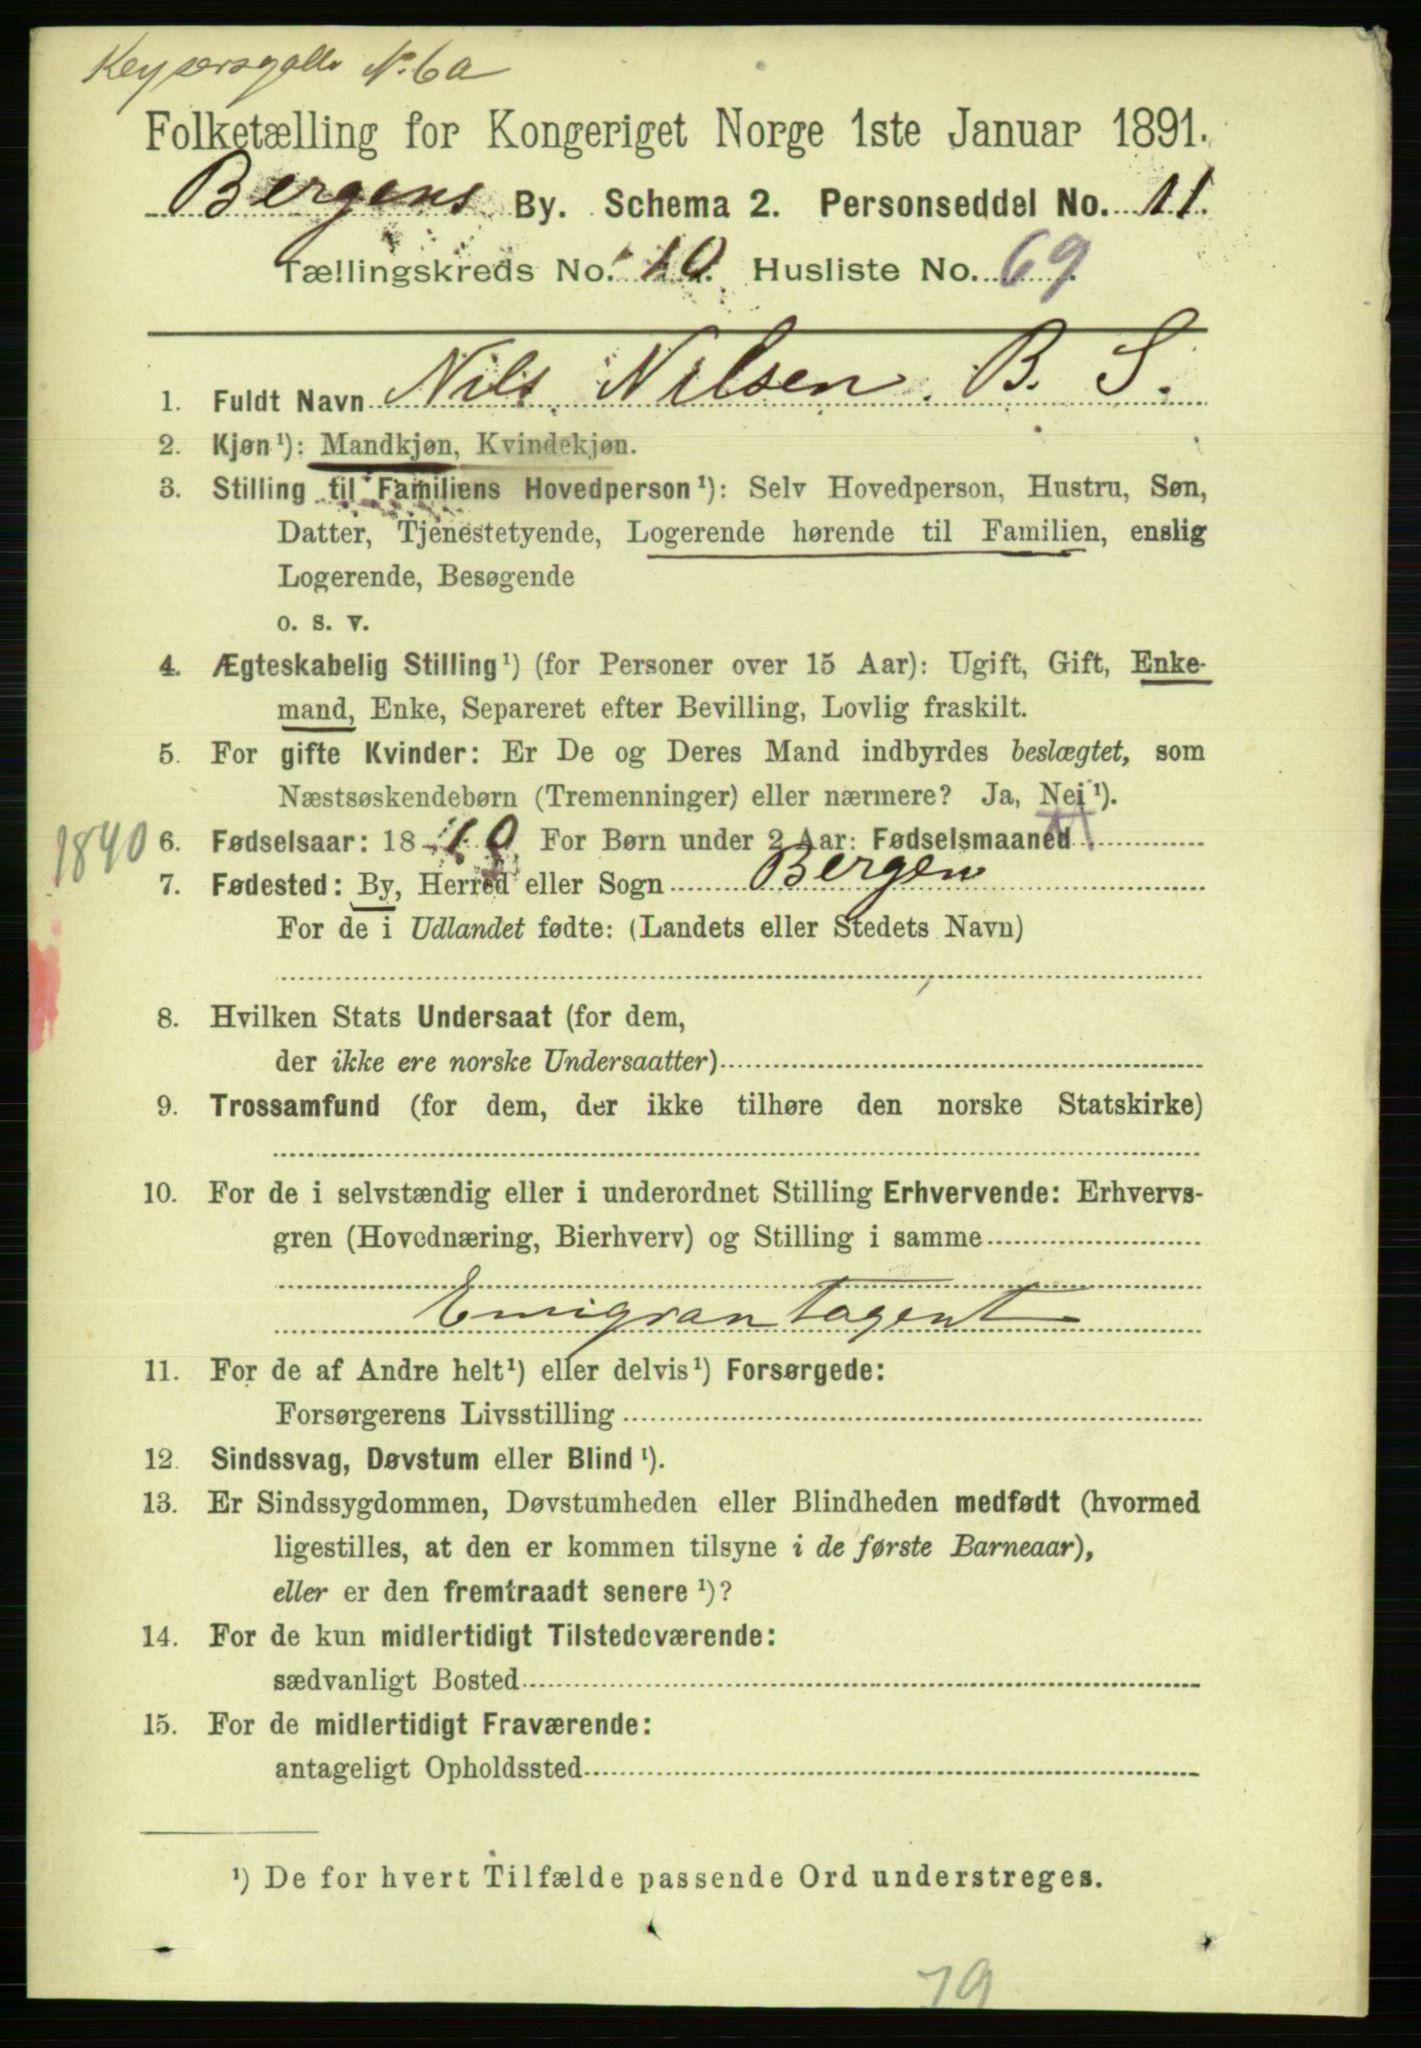 Keysersgalle N. 6a
Folketælling for Kongeriget Norge 1ste Januar 1891.
Bergens By. Schema 2. Personseddel No. 11.
Tællingskreds No. 10. Husliste No. 69.
1. Fuldt Navn Nils Nilsen. B. S.
2. Kjøn¹): Mandkjøn, Kvindekjøn.
3. Stilling til Familiens Hovedperson¹): Selv Hovedperson, Hustru, Søn,
Datter, Tjenestetyende, Logerende hørende til Familien, enslig
Logerende, Besøgende
o. s. v.
4. Ægteskabelig Stilling¹) (for Personer over 15 Aar): Ugift, Gift, Enke-
mand, Enke, Separeret efter Bevilling, Lovlig fraskilt.
5. For gifte Kvinder: Er De og Deres Mand indbyrdes beslægtet, som
Næstsøskendebørn (Tremenninger) eller nærmere? Ja, Nei¹).
1840 6. Fødselsaar: 18 10 For Børn under 2 Aar: Fødselsmaaned
7. Fødested: By, Herred eller Sogn Bergen
For de i Udlandet fødte: (Landets eller Stedets Navn)
8. Hvilken Stats Undersaat (for dem,
der ikke ere norske Undersaatter)
9. Trossamfund (for dem, der ikke tilhøre den norske Statskirke)
10. For de i selvstændig eller i underordnet Stilling Erhvervende: Erhvervs-
gren (Hovednæring, Bierhverv) og Stilling i samme
Emigrantagent
11. For de af Andre helt¹) eller delvis¹) Forsørgede:
Forsørgerens Livsstilling
12. Sindssvag, Døvstum eller Blind¹).
13. Er Sindssygdommen, Døvstumheden eller Blindheden medfødt (hvormed
ligestilles, at den er kommen tilsyne i de første Barneaar),
eller er den fremtraadt senere¹)?
14. For de kun midlertidigt Tilstedeværende:
sædvanligt Bosted
15. For de midlertidigt Fraværende:
antageligt Opholdssted
¹) De for hvert Tilfælde passende Ord understreges.
79